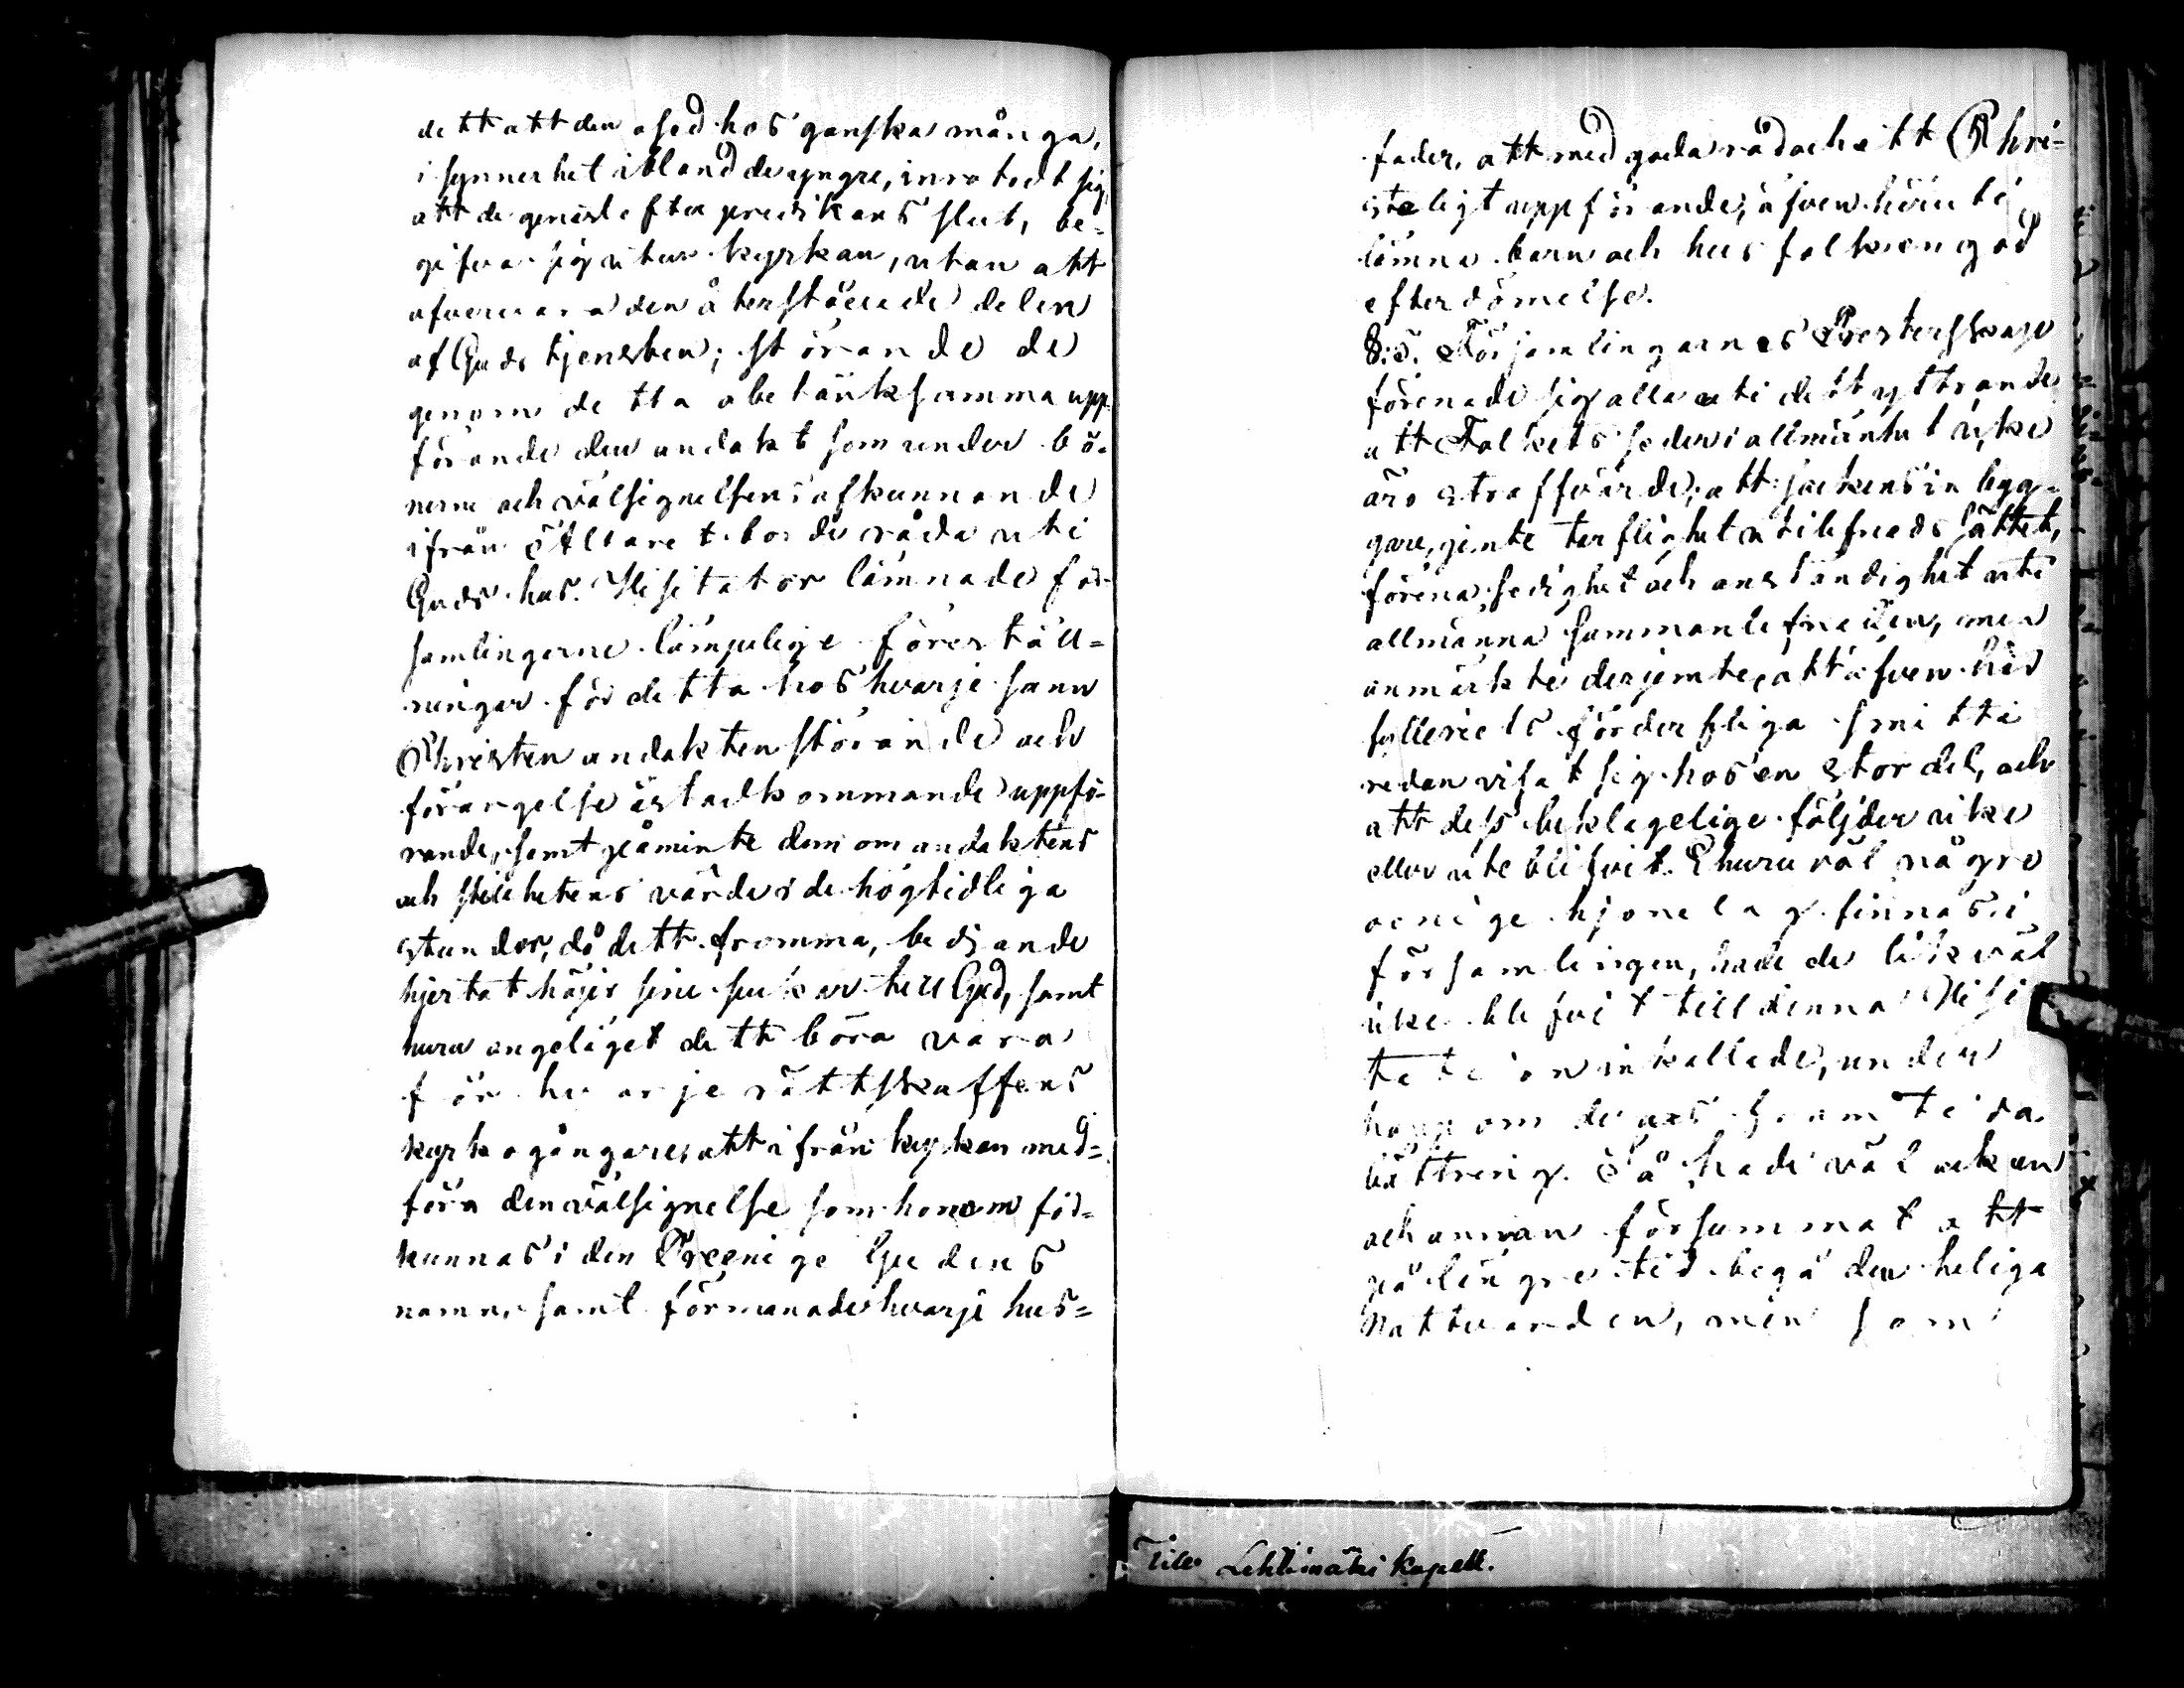 dett att den osed hos ganska många,
i synnerhet ibland de yngre, inrotadt sig,
att de genast efter predikans slut, be=
gifva sig utur kyrkan, utan att
afvevara den återstående delen
af Guds tjensten; störande de
genom detta obetänksamma upp
förande den andakt som under bö=
nerne och välsignelsens afkunnande
ifrån Altaret borde råda uti
Guds hus. Visitator lämnade för
samlingerne lämpelige föreställ=
ningar för detta hos hvarje sann
Christen andakten störande och
förargelse åstadkommande uppfö=
rande, samt påminte dem om andaktens
och stillhetens värde i de högtidliga
stunder, då dett fromma, bedjande
hjertat höjer sine suckar till Gud, samt
huru angeläget dett böra vara
för hvarje rättskaffens
kyrkogångare, att ifrån kyrkan med=
föra den välsignelse som honom för=
kunnas i den Treenige Gudens
namn, samt förmanade hvarje hus=
fader, att med goda råd och ett Chri=
steligt uppförande, äfven häruti
lämna barn och husfolk en god
efterdömelse.
8:o. Församlingarnes Presterskap
förenade sig alla uti dett yttrande
att Folkets seder i allmänhet icke
äro straffvärde; att sockensin bygg=
gare, jemte tarflighet i lefnads sättet,
förena sedighet och anständighet uti
allmänna sammanlefnaden, men
anmärkte derjemte, att äfven här
fylleriets förderfliga smitta
redan visat sig hos en stor del, och
att dess beklagelige följder icke
eller uteblifvit. Ehuru väl några
oenige hjonelag finnas i
församlingen, hade de likväl
icke blifvit till denna Visi
tation inkallade, under
hopp om deras framtida
bättring. Så hade väl ock en
och annan försummat att
på längre tid begå den heliga
Nattvarden, men som
Till Lehtimäki Kapell.